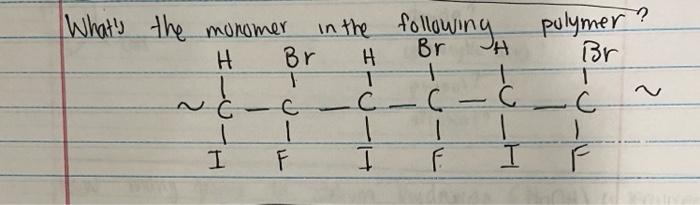 What's the monomer in the following polymer?
H Br H Br H Br
~ C - C - C - C - C - C ~
I F I F I F